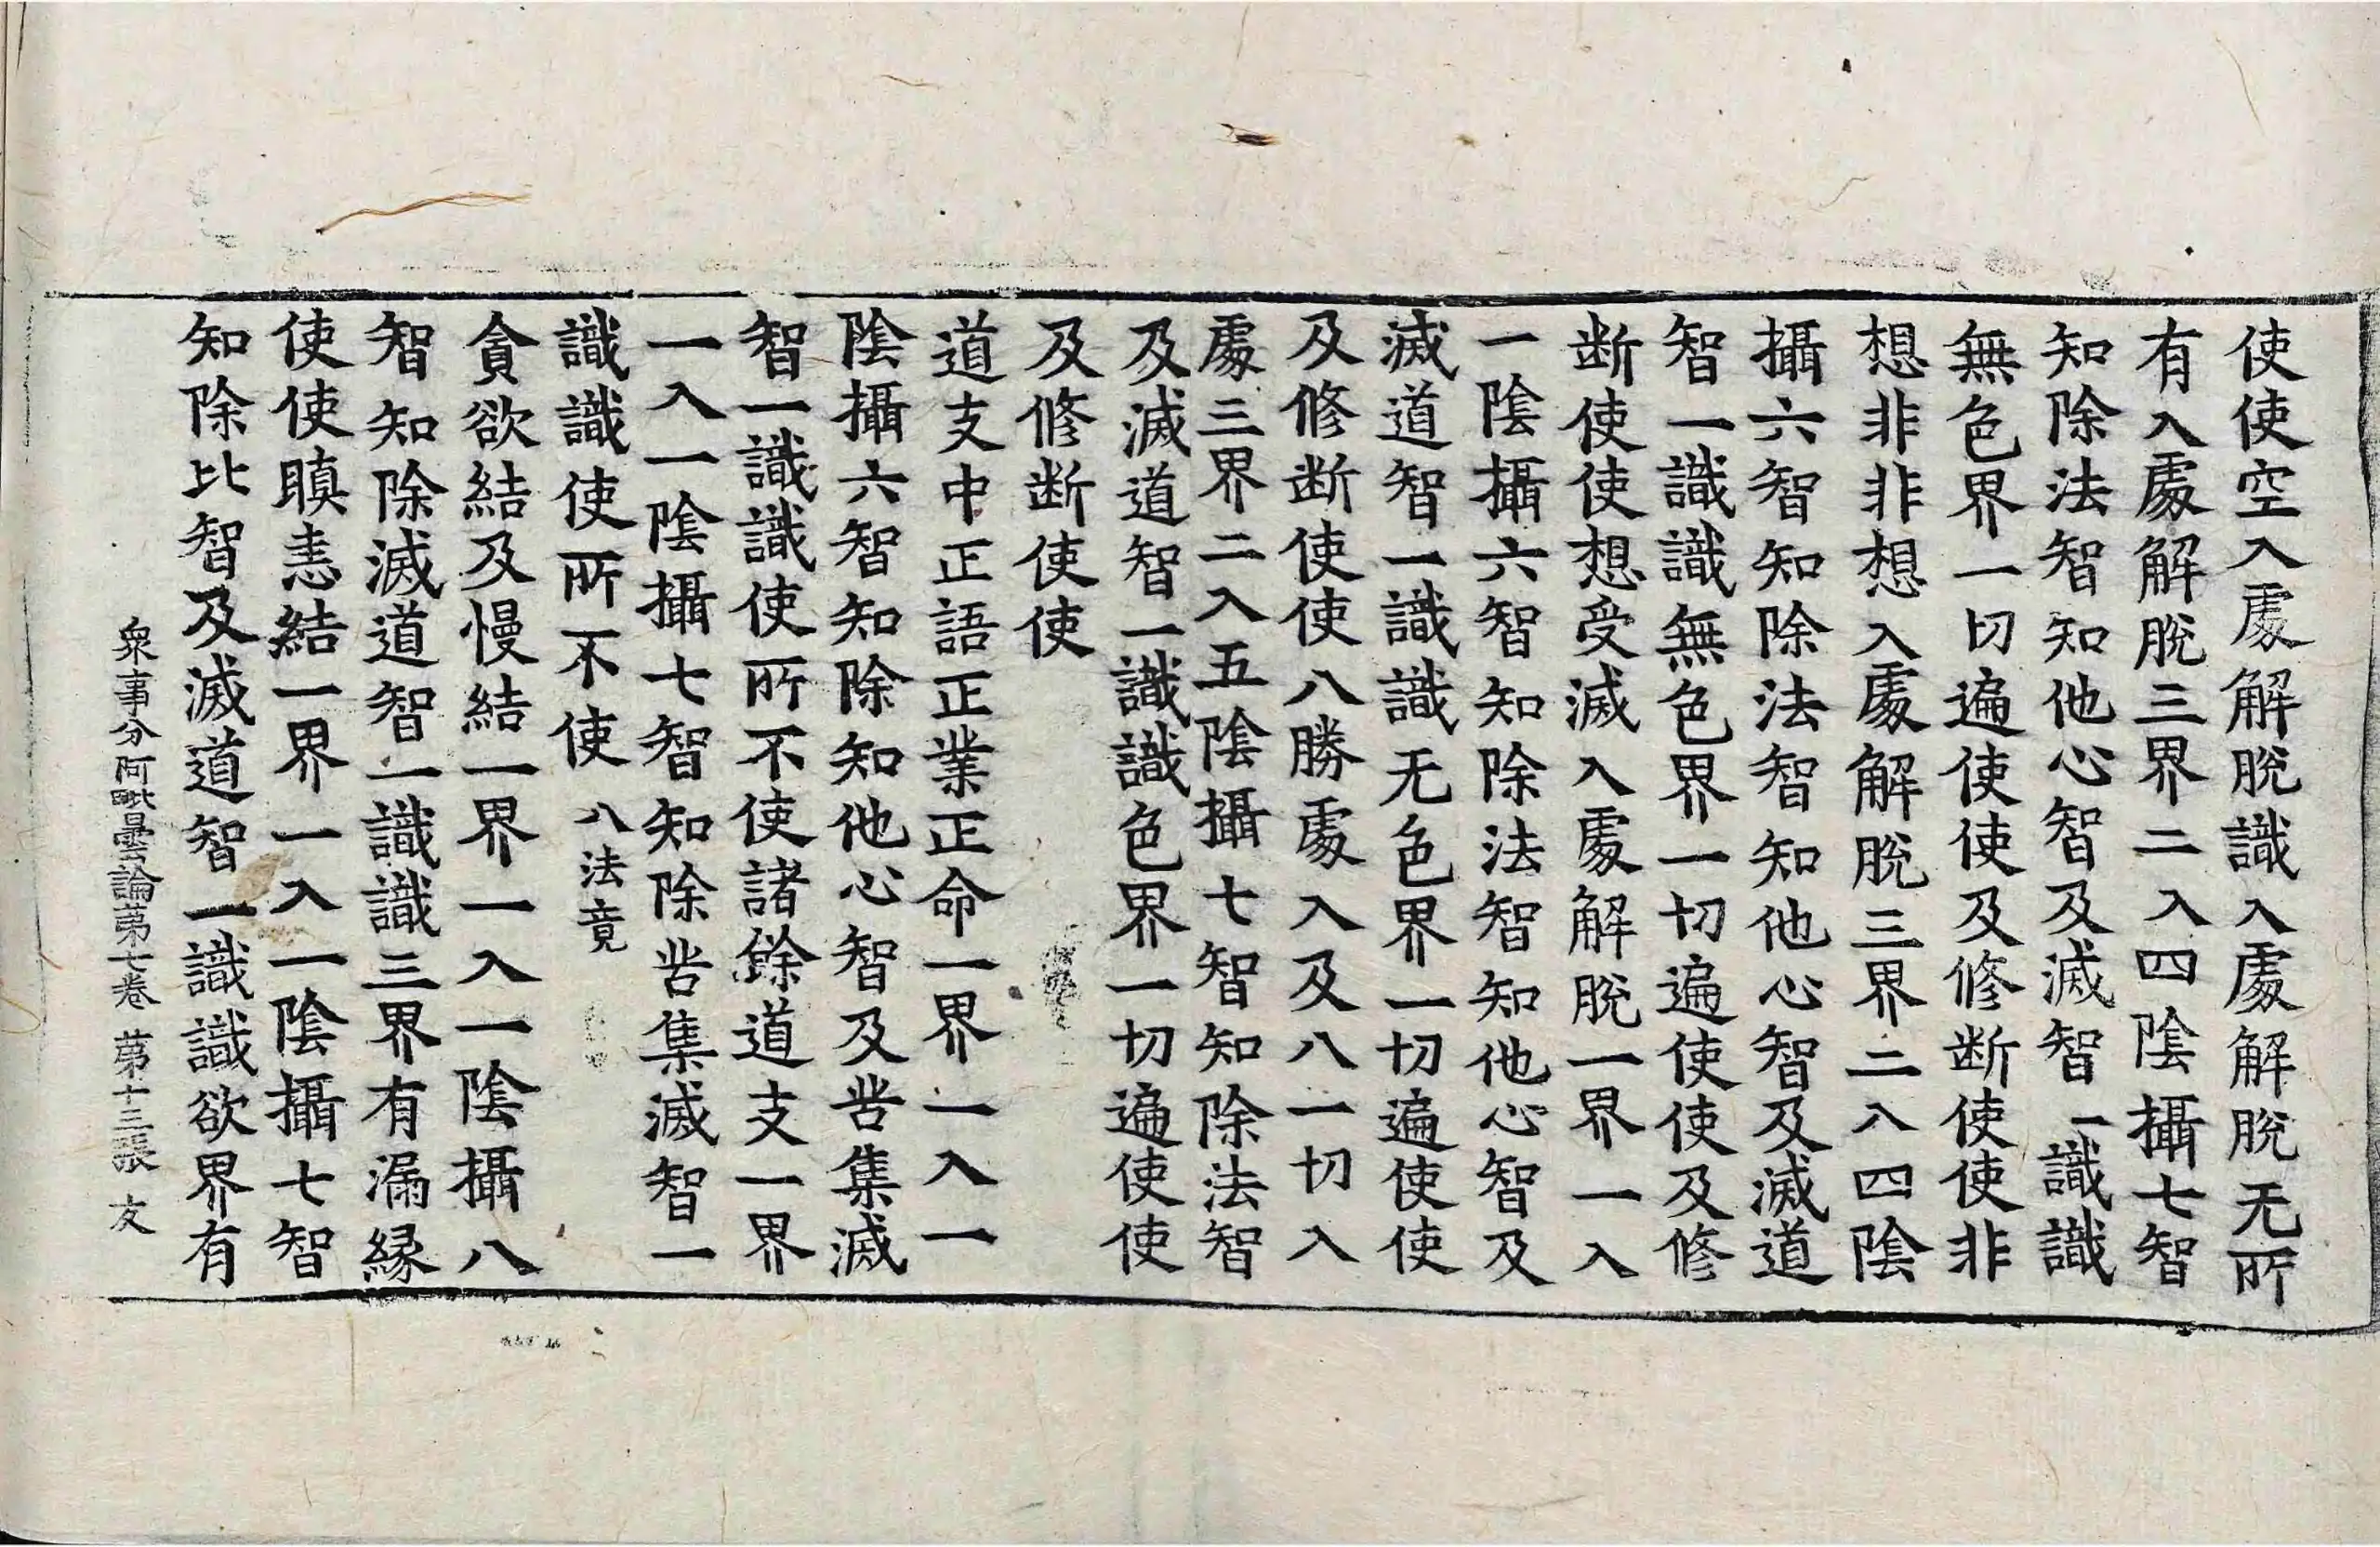 使使空入處解脫識入處解脫无所
有入處解脫三界二入四陰攝七智
知除法智知他心智及滅智一識識
無色界一切遍使使及修断使使非
想非非想入處解脫三界二入四陰
攝六智知除法智知他心智及滅道
智一識識無色界一切遍使使及修
断使使想受滅入處解脫一界一入
一陰攝六智知除法智知他心智及
滅道智一識識无色界一切遍使使
及修断使使八勝處入及八一切入
處三界二入五陰攝七智知除法智
及滅道智一識識色界一切遍使使
及修断使使
道支中正語正業正命一界一入一
陰攝六智知除知他心智及苦集滅
智一識識使所不使諸餘道支一界
一入一陰攝七智知除苦集滅智一
識識使所不使 八法竟
貪欲結及慢結一界一入一陰攝八
智知除滅道智一識識三界有漏緣
使使瞋恚結一界一入一陰攝七智
知除比智及滅道智一識識欲界有
衆事分阿毗曇論苐七卷 苐十三張 友